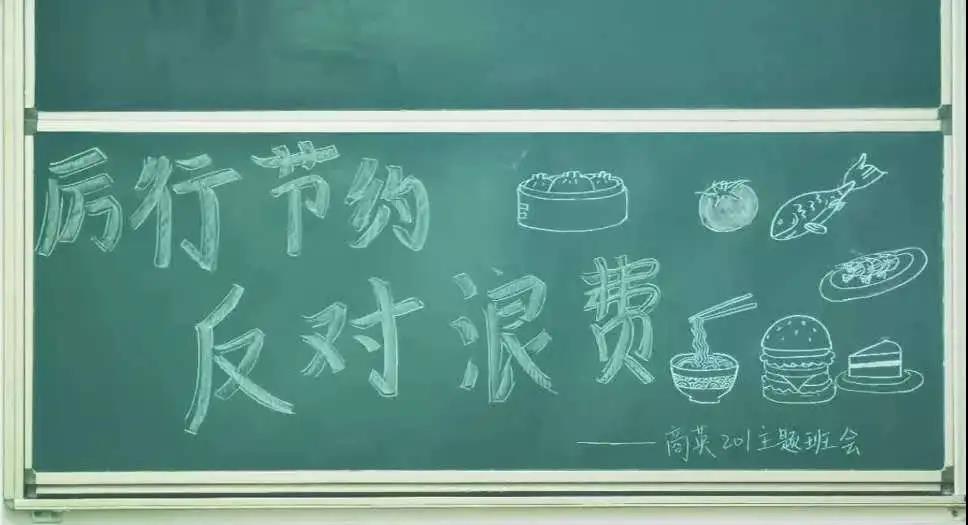 厉行节约
反对浪费
——商英201主题班会